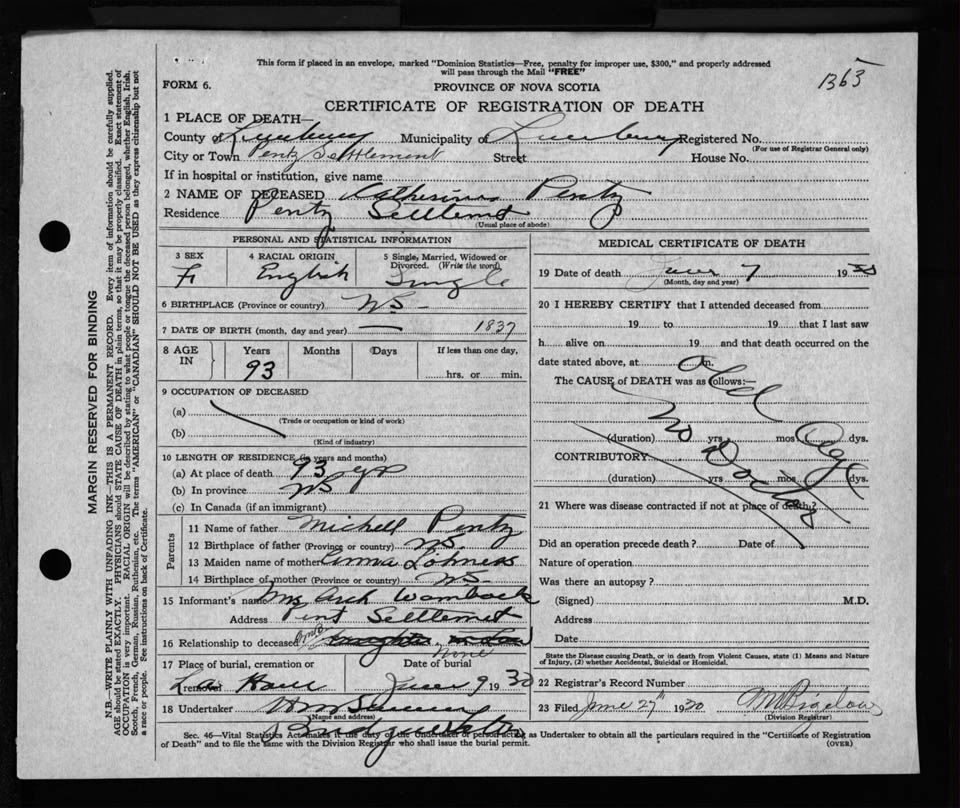 This form if placed in an envelope, marked "Dominion Statistics—Free, penalty for improper use, $300," and properly addressed
will pass through the Mail "FREE"
FORM 6.
PROVINCE OF NOVA SCOTIA
1363
CERTIFICATE OF REGISTRATION OF DEATH
1 PLACE OF DEATH—
County of Lunenburg Municipality of Lunenburg Registered No.
(For use of Registrar General only)
City or Town Pentz Settlement Street House No.
If in hospital or institution, give name
2 NAME OF DECEASED Catherine Pentz
Residence Pentz Settlemet
(Usual place of abode)
PERSONAL AND STATISTICAL INFORMATION
3 SEX 4 RACIAL ORIGIN 5 Single, Married, Widowed or
Divorced. (Write the word)
F English Single
6 BIRTHPLACE (Province or country) NS
7 DATE OF BIRTH (month, day and year) 1837
8 AGE IN Years Months Days If less than one day,
93 hrs. or min.
9 OCCUPATION OF DECEASED
(a)
(Trade or occupation or kind of work)
(b)
(Kind of industry)
10 LENGTH OF RESIDENCE (in years and months)
(a) At place of death 93 yrs
(b) In province NS
(c) In Canada (if an immigrant)
Parents
11 Name of father Michell Pentz
12 Birthplace of father (Province or country) NS
13 Maiden name of mother Anna Lohness
14 Birthplace of mother (Province or country) NS
15 Informant's name Mrs Arch Wamback
Address Pent Settlemet
16 Relationship to deceased
none
17 Place of burial, cremation or removal Date of burial
La Have June 9 1930
18 Undertaker
(Name and address)
Bridgewater
MEDICAL CERTIFICATE OF DEATH
19 Date of death June 7 1930
(Month, day and year)
20 I HEREBY CERTIFY that I attended deceased from
19 to 19 that I last saw
h alive on 19 and that death occurred on the
date stated above, at m.
The CAUSE of DEATH was as follows:—
Old Age
(duration) yrs. mos. dys.
No Doctor
CONTRIBUTORY
(duration) yrs mos. dys.
21 Where was disease contracted if not at place of death?
Did an operation precede death? Date of
Nature of operation
Was there an autopsy?
(Signed) M.D.
Address
Date
State the Disease causing Death, or in death from Violent Causes, state (1) Means and
Nature of Injury, (2) whether Accidental, Suicidal or Homicidal.
22 Registrar's Record Number
23 Filed June 27th 1930 Bigelow
(Division Registrar)
Sec. 46—Vital Statistics Act makes it the duty of the Undertaker or person acting as Undertaker to obtain all the particulars required in the "Certificate of Registration
of Death" and to file the same with the Division Registrar who shall issue the burial permit.
(OVER)
MARGIN RESERVED FOR BINDING
N.B.—WRITE PLAINLY WITH UNFADING INK—THIS IS A PERMANENT RECORD. Every item of information should be carefully supplied.
AGE should be stated EXACTLY. PHYSICIANS should STATE CAUSE OF DEATH in plain terms, so that it may be properly classified. Exact statement of
OCCUPATION is very important. RACIAL ORIGIN will be described by stating to what people or tongue the deceased person belonged, whether English, Irish,
Scotch, French, German, Russian, Ruthenian, etc. The terms "AMERICAN" or "CANADIAN" SHOULD NOT BE USED as they express citizenship but not
a race or people. See instructions on back of Certificate.